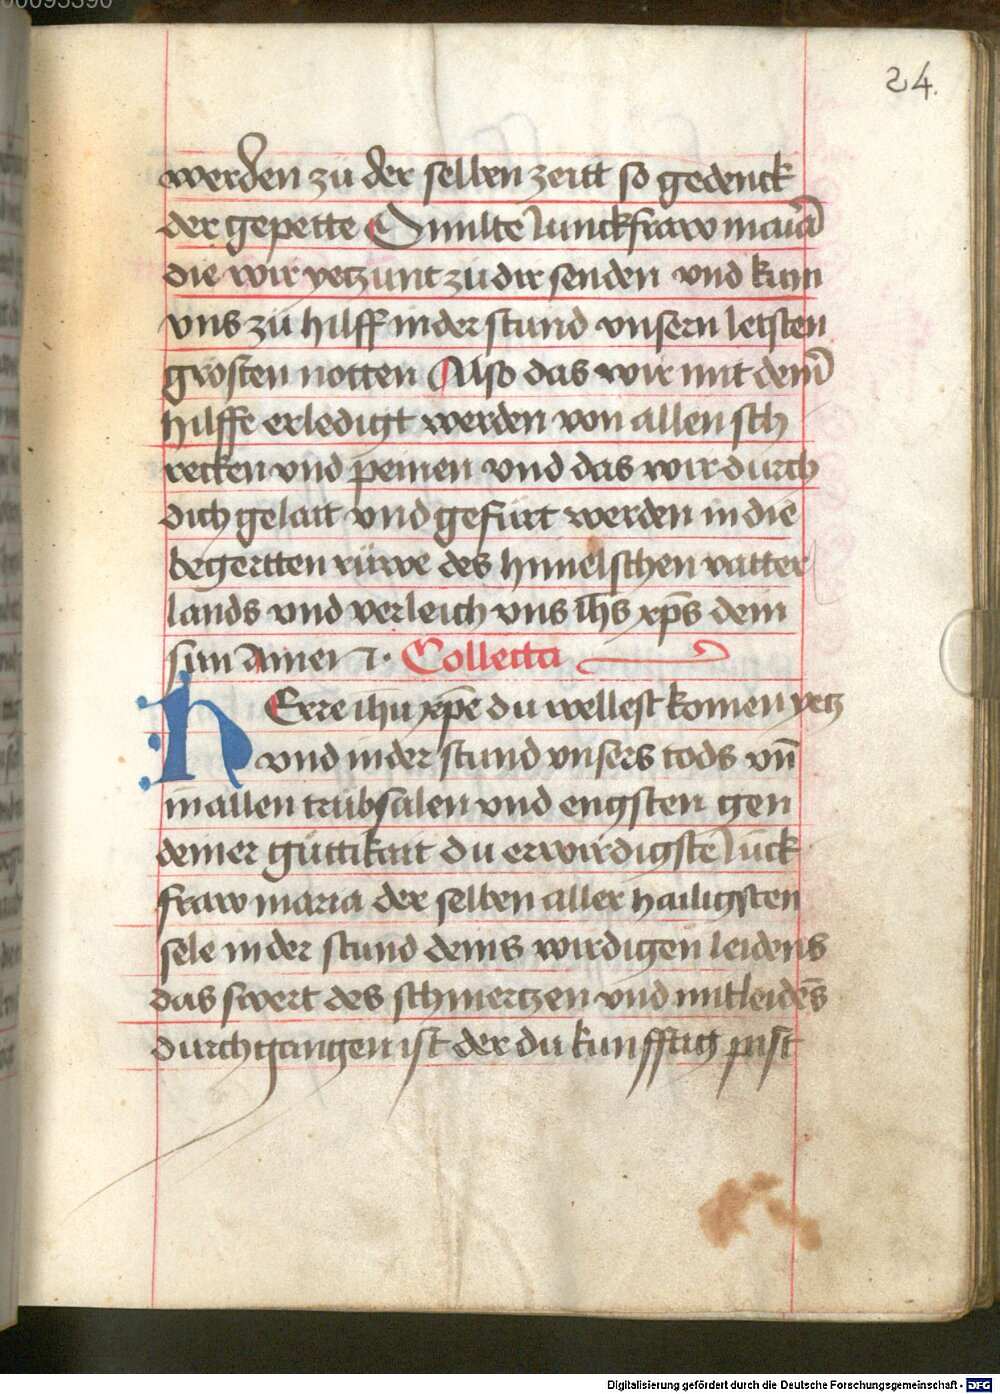 00095390
24.
werden zu der selben zeitt so gedenck
der gepette O milte Junckfraw maria
die wir yetzunt zu dir senden vnd kum
vns zü hilff in der stund vnsern letsten
grosten notten Also das wir mit dem̄
hilffe erledigt werden von allen sch
recken vnd peinen vnd das wir durch
dich gelait vnd gefürt werden in die
begertten rüwe des himelschen vatter
lands vnd verleich vns ih̄s xp̄s dein
sun Amen
Collecta
HErre ihū xp̄e du wellest komen yetz
vnd in der stund vnsers tods vn̄
in allen trübsalen vnd engsten gen
deiner güttikait du erwirdigste Jūck
fraw maria der selben aller hailigsten
sele in der stund deins wirdigen leidens
das swert des schmertzen vnd mitleidēs
durchgangen ist der du kunfftig pist
Digitalisierung gefördert durch die Deutsche Forschungsgemeinschaft - DFG